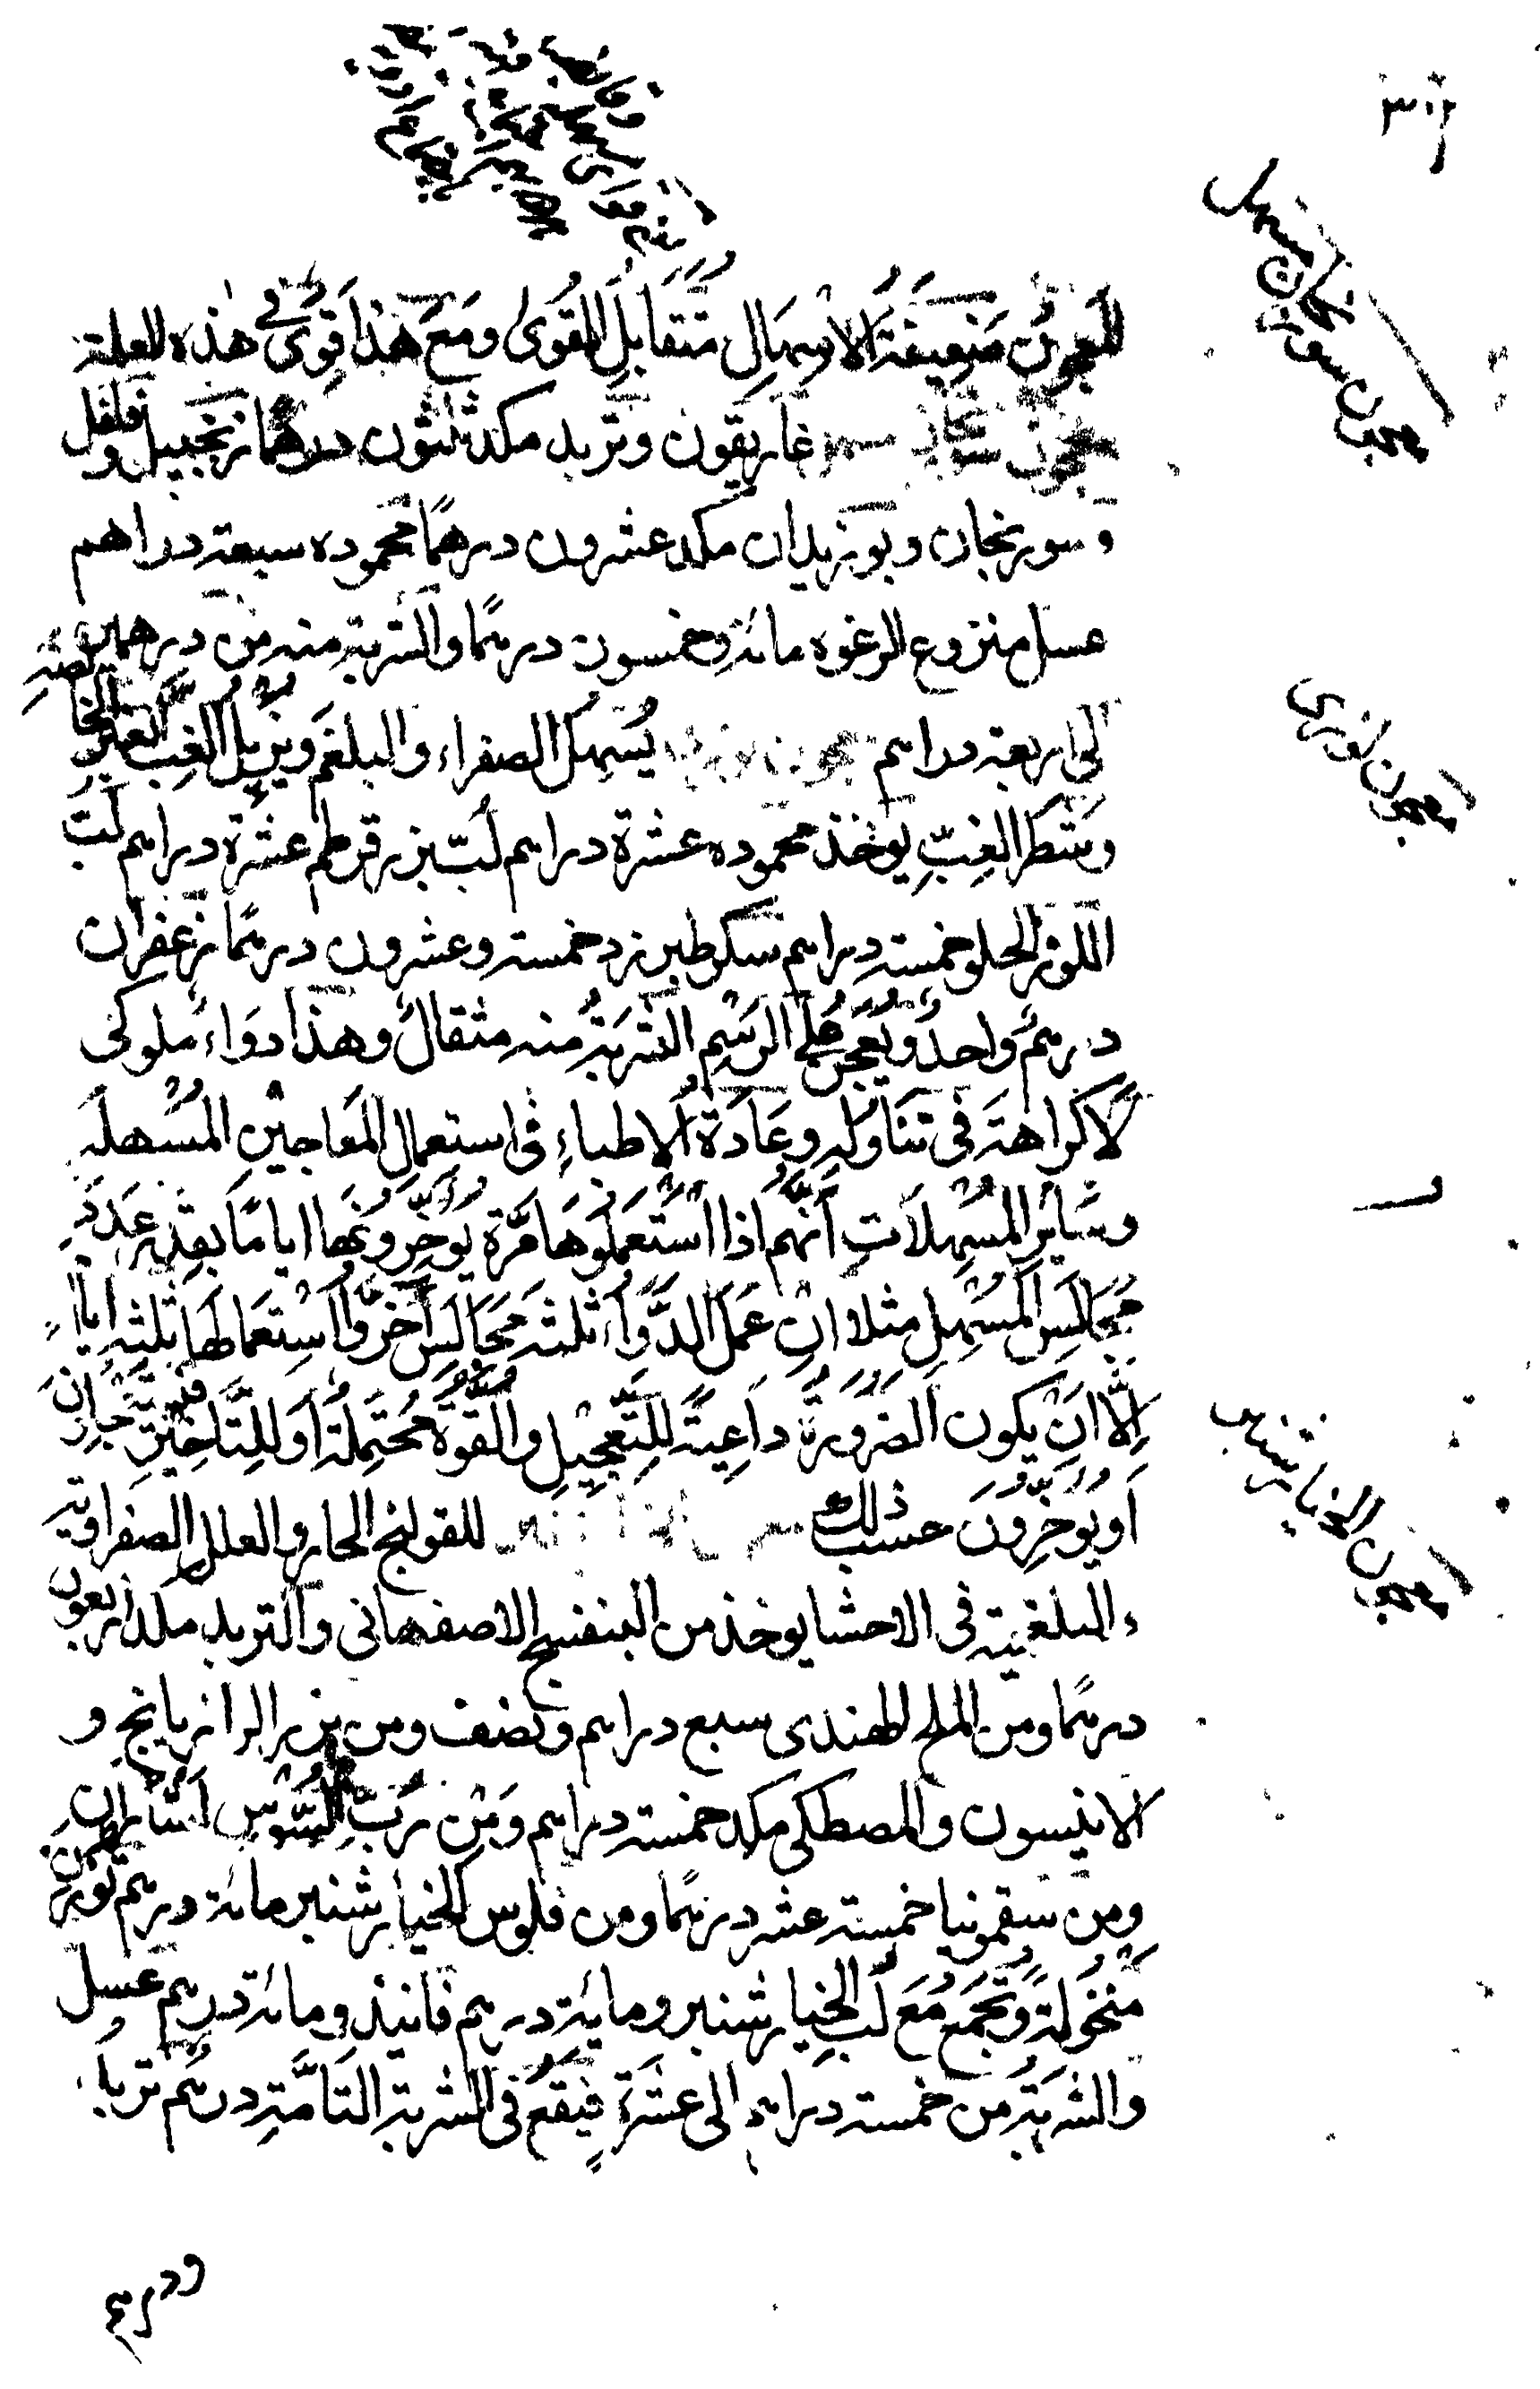 ٣٠٢
معجون سورنجان مسهل
المعجون ضعيفة الاسهال تتقابل القوى ومع هذا قوى فى هذه العلة
معجون سورنجان مسهل غاريقون وتربد مكد ثلثون درهما زنجبيل وفلفل
وسورنجان وبوزيدان مكد عشرون درهمًا محموده سبعة دراهم
عسل منزوع الرغوه مائة وخمسون درهمًا والشربة منه من درهمين
الى اربعة دراهم معجون لوزى يُسْهِلُ الصفراء والبلغَم ويُزيلُ الغِبّ الغير الخالصة
معجون لوزى
وشَطر الغِبِّ يوخذ محموده عشرة دراهم لُبّ بزر قرطم عشرة دراهم لُبّ
اللوز الحلو خمسة دراهم سكر طبرزد خمسة وعشرون درهمًا زعفران
درهمٌ واحدٌ ويُعجن على الرَسْمِ الشربَةُ منه مثقالٌ وهذا دَوَاءٌ ملوكى
لَا كراهَةَ فى تنَاوله وعَادَةُ الاطباءِ فى استعمال المَعاجينِ المُسْهلَه
وسَايرِ المُسْهلاَتِ اَنّهُم اذا اسْتَعمَلُوهَا مَرَّة يُوَخِّرُونهَا ايامًا بقدر عَدَدِ
مَجَالسِ المُسْهِلِ مثلا ان عمَلَ الدَّوَاءُ ثلثة مَجَالسَ اَخَّرُوا اسْتِعمَالهَا ثلثة ايامٍ
اِلّا اَنْ يكون الضرُورةُ دَاعِيَةً لِلتَّعجيلِ والقُوَّةُ مُحْتَمِلَةٌ اَو لِلتَّاخيرِ
اَو يُوَخِّرُونَ حسب ذلك معجون الخيارشنبر للقولنج الحار والعلل الصفراوية
معجون الخيارشنبر
والبلغمية فى الاحشا يوخذ من البنفسج الاصفهانى والتربد مكد اربعون
درهمًا ومن الملح الهندى سبع دراهم ونصف ومن بزر الرازيانج و
الانيسون والمصطكى مكد خمسة دراهم ومن رُبّ السُّوس
ومن سقمونيا خمسة عشر درهمًا ومن فلوس الخيارشنبر مائة درهم
مَنخُولَةً وتُجمَعُ مَعَ لُبّ الخيارشنبر ومائة درهم فانيذ ومائة درهم عسل
والشربَةُ من خمسة دراهم الى عشَرة فيقعُ فى الشربة التامَّةِ درهم تربد
ودرهم